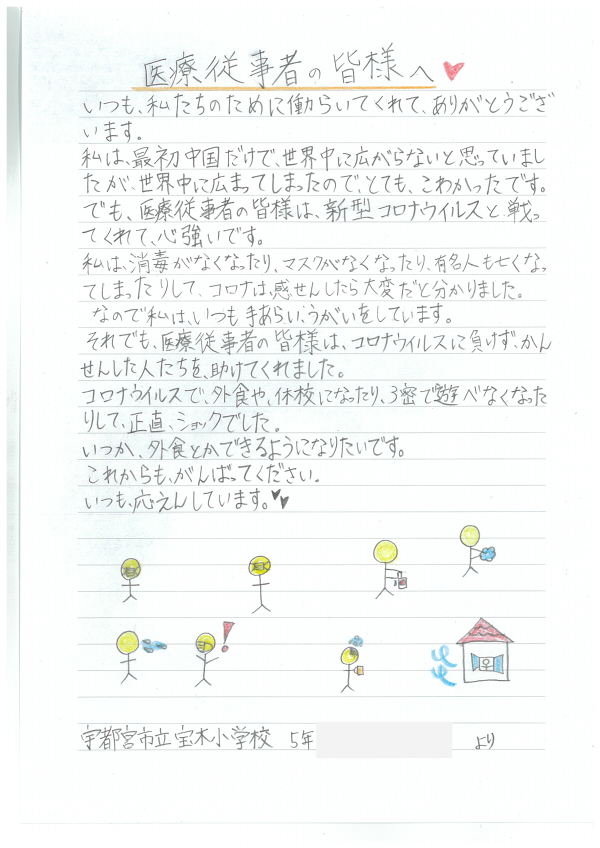 医療従事者の皆様へ
いつも、私たちのために働らいてくれて、ありがとうござ
います。
私は、最初中国だけで、世界中に広がらないと思っていまし
たが、世界中に広まってしまったので、とても、こわかったです。
でも、医療従事者の皆様は、新型コロナウイルスと戦っ
てくれて、心強いです。
私は、消毒がなくなったり、マスクがなくなったり、有名人も亡くなっ
てしまったりして、コロナは、感せんしたら大変だと分かりました。
なので私は、いつも手あらい、うがいをしています。
それでも、医療従事者の皆様は、コロナウイルスに負けず、かん
せんした人たちを、助けてくれました。
コロナウイルスで、外食や、休校になったり、3密で遊べなくなった
りして、正直、ショックでした。
いつか、外食とかできるようになりたいです。
これからも、がんばってください。
いつも、応えんしています。
宇都宮市立宝木小学校 5年 より